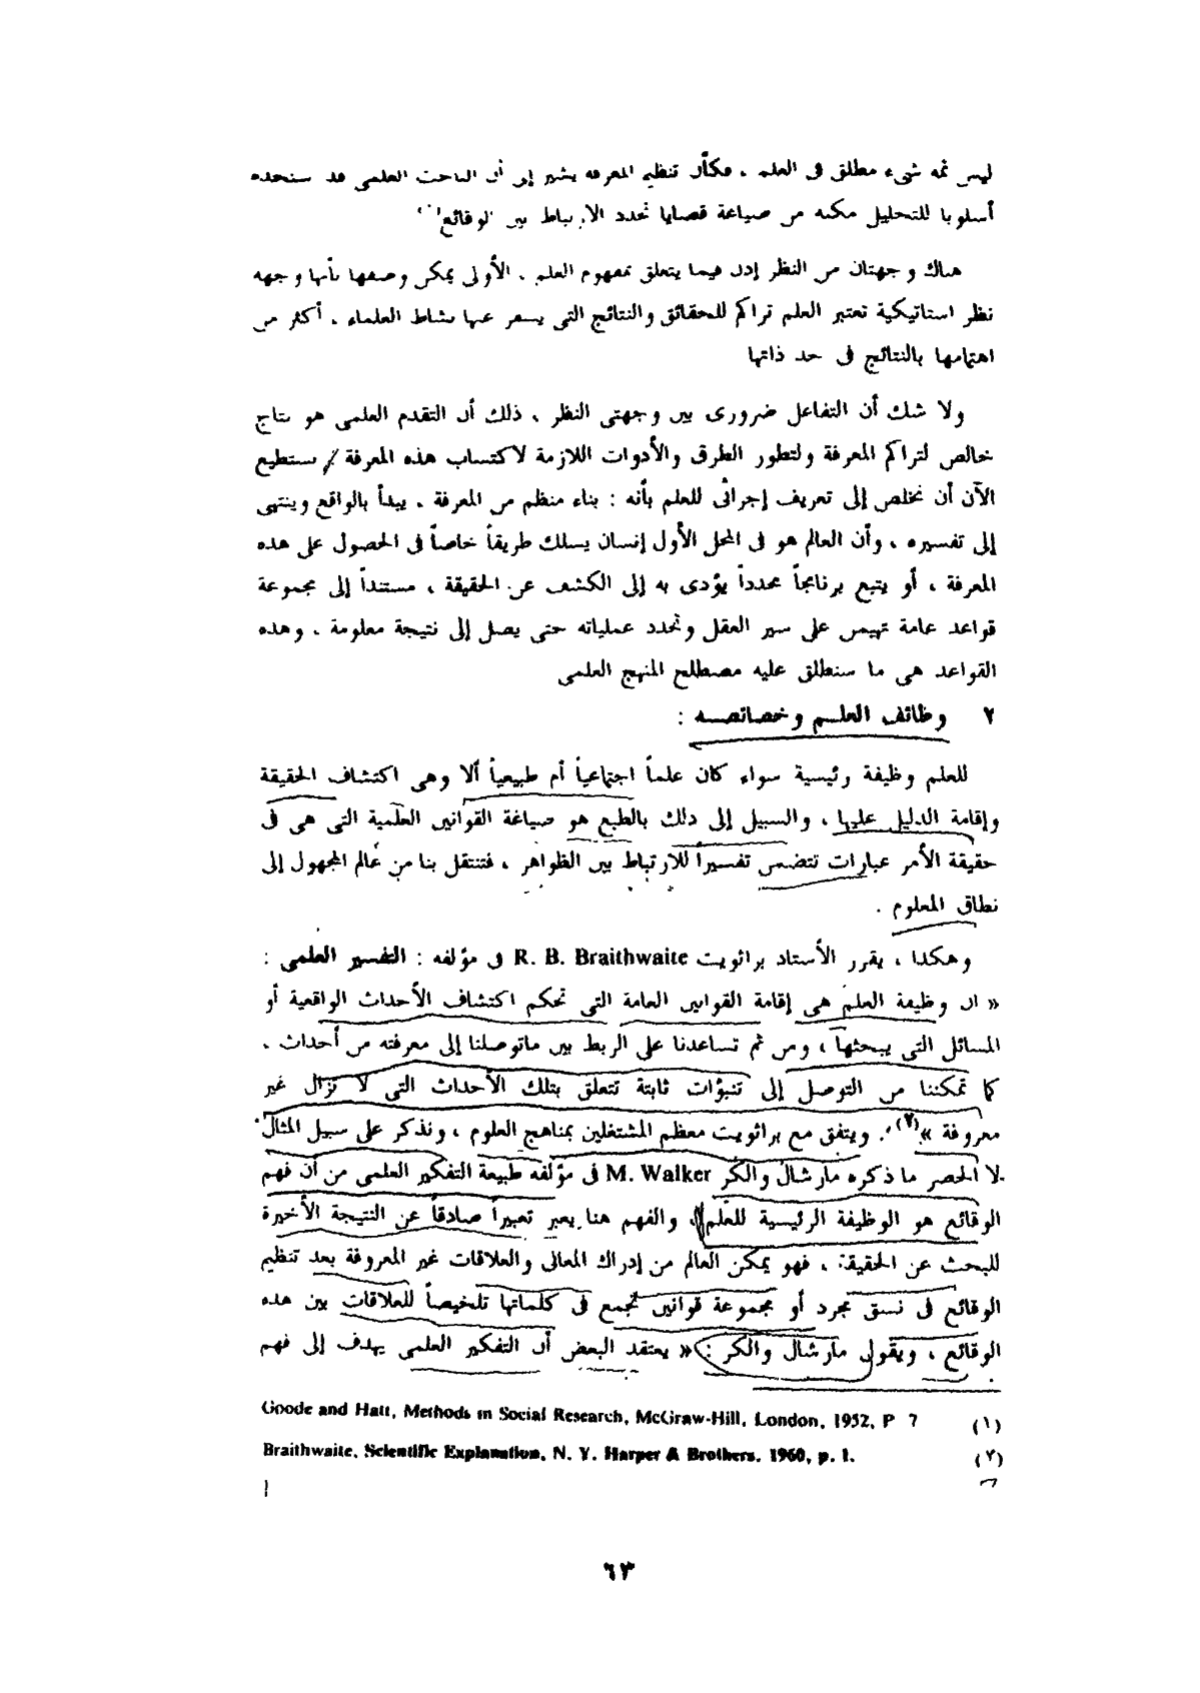 ليس ثمة شيء مطلق في العلم ، فكأن تنظيم المعرفة يشير إلى أن الباحث العلمي قد يستخدم
أسلوبا للتحليل مكنه من صياغة قضايا تحدد الارتباط بين الوقائع
هناك وجهتان من النظر إذن فيما يتعلق بمفهوم العلم ، الأولى يمكن وصفها بأنها وجهة
نظر استاتيكية تعتبر العلم تراكم للحقائق والنتائج التي يسفر عنها نشاط العلماء ، أكثر من
اهتمامها بالنتائج في حد ذاتها
ولا شك أن التفاعل ضروري بين وجهتي النظر ، ذلك أن التقدم العلمي هو نتاج
خالص لتراكم المعرفة ولتطور الطرق والأدوات اللازمة لاكتساب هذه المعرفة / نستطيع
الآن أن نخلص إلى تعريف إجرائي للعلم بأنه : بناء منظم من المعرفة ، يبدأ بالواقع وينتهي
إلى تفسيره ، وأن العالم هو في المحل الأول إنسان يسلك طريقاً خاصاً في الحصول على هذه
المعرفة ، أو يتبع برنامجاً محدداً يؤدى به إلى الكشف عن الحقيقة ، مستنداً إلى مجموعة
قواعد عامة تهيمن على سير العقل وتحدد عملياته حتى يصل إلى نتيجة معلومة . وهذه
القواعد هي ما سنطلق عليه مصطلح المنهج العلمي
٢ وظائف العلم وخصائصه :
للعلم وظيفة رئيسية سواء كان علماً اجتماعياً أم طبيعياً ألا وهي اكتشاف الحقيقة
وإقامة الدليل عليها ، والسبيل إلى ذلك بالطبع هو صياغة القوانين العلمية التي هي في
حقيقة الأمر عبارات تتضمن تفسيراً للارتباط بين الظواهر ، فتنتقل بنا من عالم المجهول إلى
نطاق المعلوم .
وهكذا ، يقرر الأستاذ براثويت R. B. Braithwaite في مؤلفه : التفسير العلمي :
« ان وظيفة العلم هي إقامة القوانين العامة التي تحكم اكتشاف الأحداث الواقعية أو
المسائل التي يبحثها ، ومن ثم تساعدنا على الربط بين ماتوصلنا إلى معرفته من أحداث .
كما تمكننا من التوصل إلى تنبؤات ثابتة تتعلق بتلك الأحداث التي لا تزال غير
معروفة »(٢) . ويتفق مع براثويت معظم المشتغلين بمناهج العلوم ، ونذكر على سبيل المثال
لا الحصر ما ذكره مارشال والكر M. Walker في مؤلفه طبيعة التفكير العلمي من أن فهم
الوقائع هو الوظيفة الرئيسية للعلم ، والفهم هنا يعبر تعبيراً صادقاً عن النتيجة الأخيرة
للبحث عن الحقيقة ، فهو يمكن العالم من إدراك المعاني والعلاقات غير المعروفة بعد تنظيم
الوقائع في نسق مجرد أو مجموعة قوانين تجمع في كلماتها تلخيصاً للعلاقات بين هذه
الوقائع ، ويقول مارشال والكر : « يعتقد البعض أن التفكير العلمي يهدف إلى فهم
(١) Goode and Hatt, Methods in Social Research, McGraw-Hill, London, 1952, P 7
(٢) Braithwaite, Scientific Explanation, N. Y. Harper & Brothers, 1960, p. 1.
٦٣